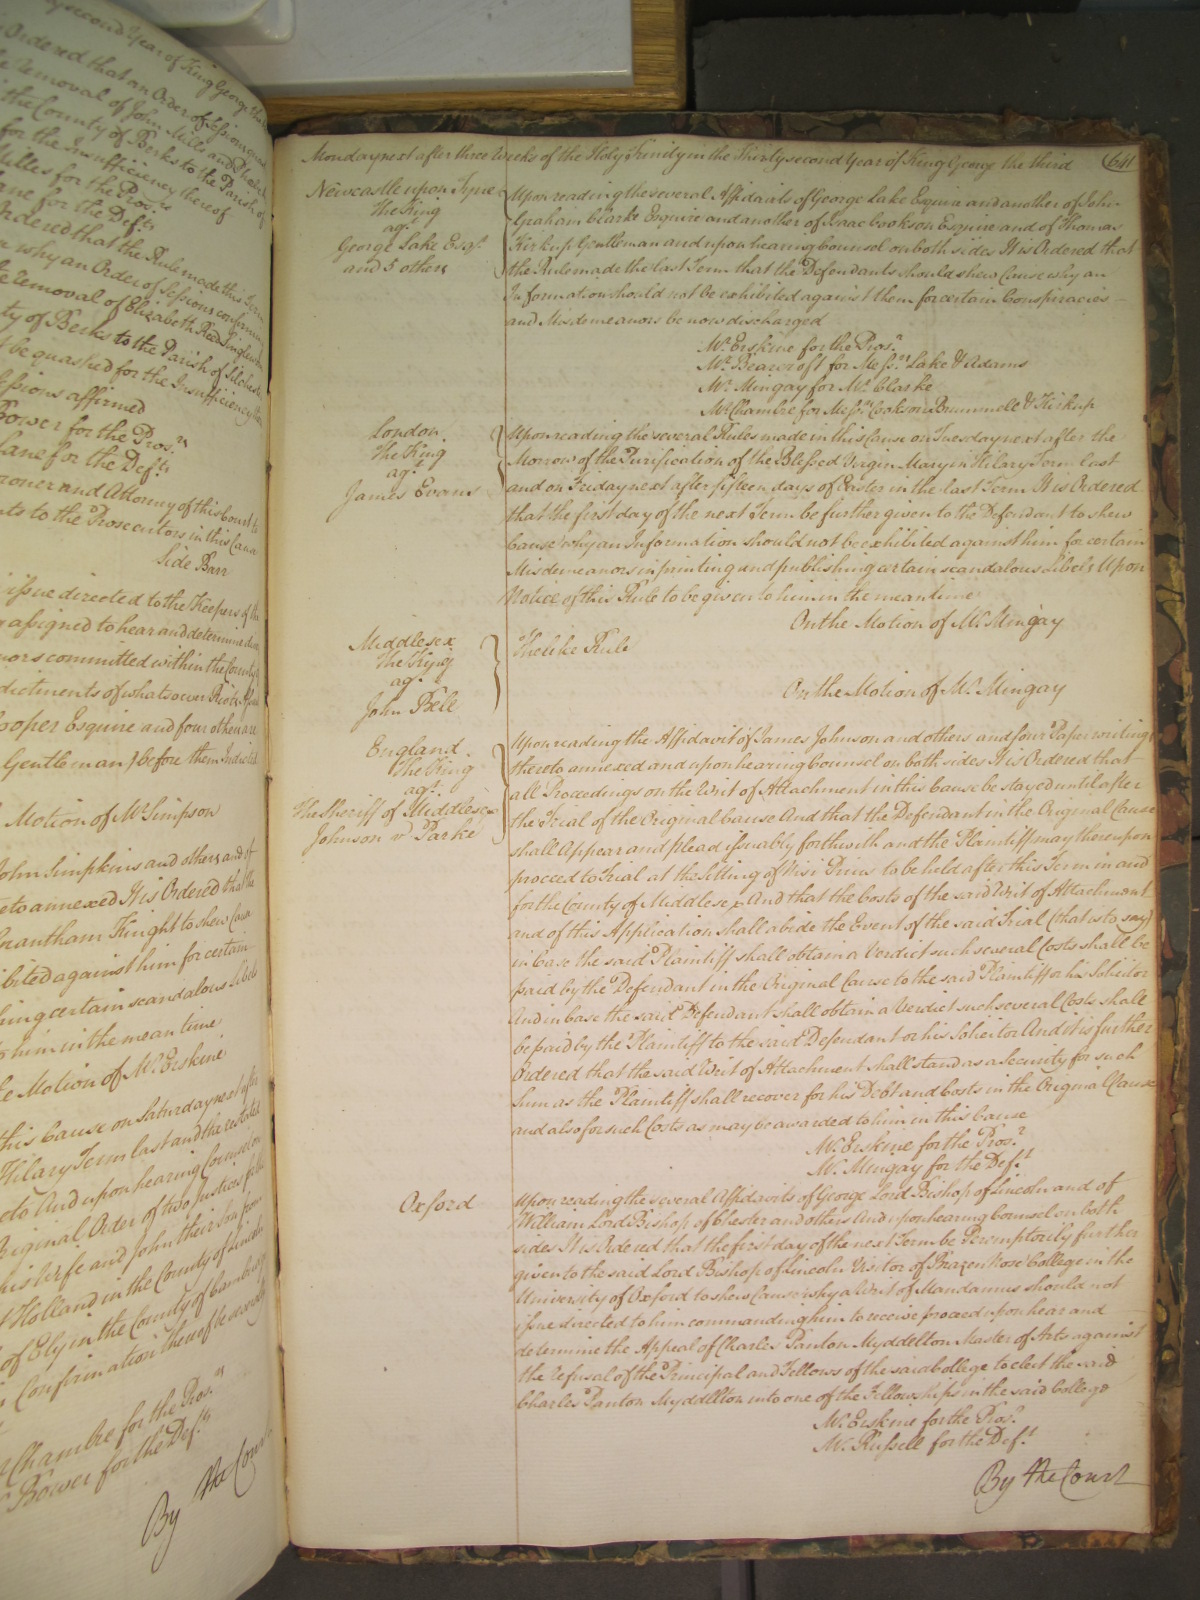 y second Year of King George the
Ordered that an Order of Sessions
removal of John Mills and
the County of Berks to the Parish of
for the Insufficiency thereof
Milles for the Pros.rs
ane for the Def.ts
Ordered that the Rule made this Term
why an Order of Sessions confirming
Removal of Elizabeth Reed Singlewoman
ty of Berks to the Parish of Silchester
be quashed for the Insufficiency
essions affirmed
Bower for the Pros.rs
Lane for the Def.ts
oroner and Attorney of this Court
nts to the Prosecutors in this Cause
Side Barr
issue directed to the Keepers of the
assigned to hear and determine
nors committed within the County
dictments of whatsoever Riots
ooper Esquire and four others are
Gentleman) before them Indicted
Motion of Mr. Simpson
John Simpkins and others and of
eto annexed It is Ordered that the
Grantham Knight to shew Cause
ibited against him for certain
hing certain scandalous Libels
to him in the mean time
e Motion of Mr. Erskine
this Cause on Saturday next after
Hilary Term last and the
cto And upon hearing Counsel on
riginal Order of two Justices
his Wife and John their Son from
Holland in the County of Lincoln
of Ely in the County of Cambridge
Confirmation thereof be severally
Chambre for the Pros.rs
Bower for the Def.ts
By the Court
Monday next after three Weeks of the Holy Trinity in the Thirty second Year of King George the third
641
Newcastle upon Tyne
The King
ag.t
George Lake Esq.r
and 5 others
Upon reading the several Affidavits of George Lake Esquire and another of John
Graham Clarke Esquire and another of Isaac Cookson Esquire and of Thomas
Kirkup Gentleman and upon hearing Counsel on both sides It is Ordered that
the Rule made the last Term that the Defendants should shew Cause why an
Information should not be exhibited against them for certain Conspiracies
and Misdemeanors be now discharged
Mr. Erskine for the Pros.r
Mr. Bearcroft for Mess.rs Lake & Adams
Mr. Mingay for Mr. Clarke
Mr. Chambre for Mess.rs Cookson Brummell & Kirkup
London
The King
ag.t
James Evans
Upon reading the several Rules made in this Cause on Tuesday next after the
Morrow of the Purification of the Blessed Virgin Mary in Hilary Term last
and on Friday next after fifteen days of Easter in the last Term It is Ordered
that the first day of the next Term be further given to the Defendant to shew
Cause why an Information should not be exhibited against him for certain
Misdemeanors in printing and publishing certain scandalous Libels Upon
Notice of this Rule to be given to him in the mean time
On the Motion of Mr. Mingay
Middlesex
The King
ag.t
John Bell
The like Rule
On the Motion of Mr. Mingay
England
The King
ag.t
The Sheriff of Middlesex
Johnson v Parke
Upon reading the Affidavit of James Johnson and others and four Paper writings
thereto annexed and upon hearing Counsel on both sides It is Ordered that
all Proceedings on the Writ of Attachment in this Cause be stayed until after
the Trial of the Original Cause And that the Defendant in the Original Cause
shall Appear and plead issuably forthwith and the Plaintiff may thereupon
proceed to Trial at the Sitting of Nisi Prius to be held after this Term in and
for the County of Middlesex And that the Costs of the said Writ of Attachment
and of this Application shall abide the Event of the said Trial (that is to say)
in Case the said Plaintiff shall obtain a Verdict such several Costs shall be
paid by the Defendant in the Original Cause to the said Plaintiff or his Solicitor
And in Case the said Defendant shall obtain a Verdict such several Costs shall
be paid by the Plaintiff to the said Defendant or his Solicitor And it is further
Ordered that the said Writ of Attachment shall stand as a Security for such
Sum as the Plaintiff shall recover for his Debt and Costs in the Original Cause
and also for such Costs as may be awarded to him in this Cause
Mr. Erskine for the Pros.r
Mr. Mingay for the Def.t
Oxford
Upon reading the several Affidavits of George Lord Bishop of Lincoln and of
William Lord Bishop of Chester and others And upon hearing Counsel on both
sides It is Ordered that the first day of the next Term be Peremptorily further
given to the said Lord Bishop of Lincoln Visitor of Brazen Nose College in the
University of Oxford to shew Cause why a Writ of Mandamus should not
issue directed to him commanding him to receive proceed upon hear and
determine the Appeal of Charles Panton Myddelton Master of Arts against
the refusal of the Principal and Fellows of the said College to elect the said
Charles Panton Myddelton into one of the Fellowships in the said College
Mr. Erskine for the Pros.r
Mr. Russell for the Def.t
By the Court